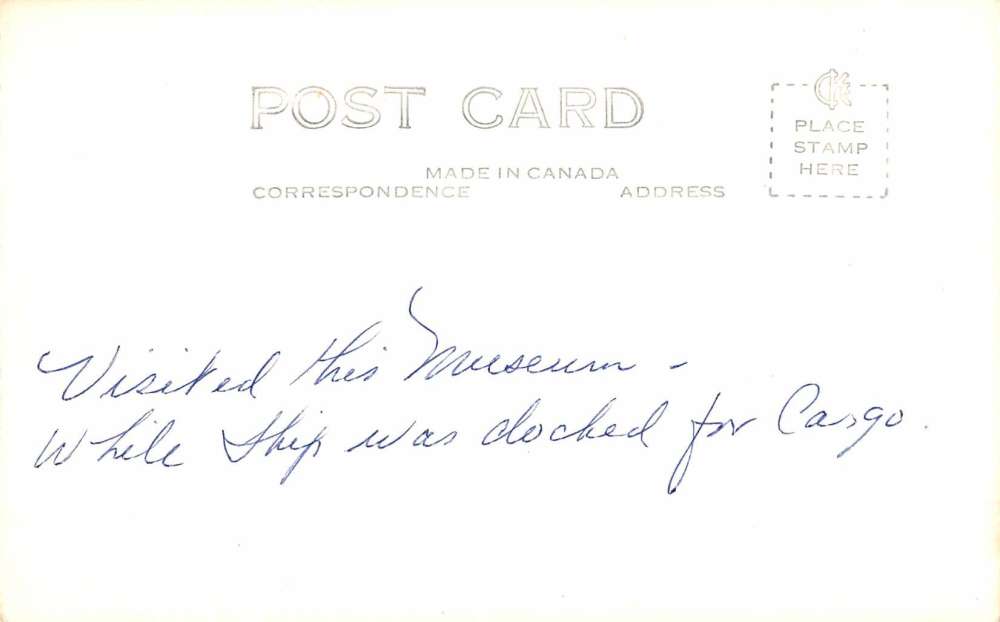 POST CARD
MADE IN CANADA
CORRESPONDENCE ADDRESS
PLACE
STAMP
HERE
Visited this Museum -
While Ship was docked for Cargo.